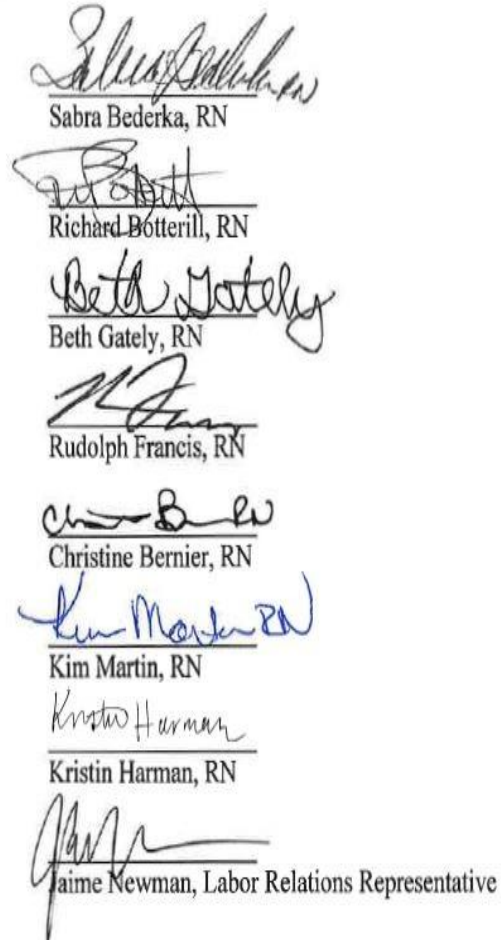 Sabra Bederka, RN
Richard Botterill, RN
Beth Gately
Beth Gately, RN
Rudolph Francis, RN
RN
Christine Bernier, RN
Kim Martin RN
Kim Martin, RN
Kristin Harman
Kristin Harman, RN
Jaime Newman, Labor Relations Representative